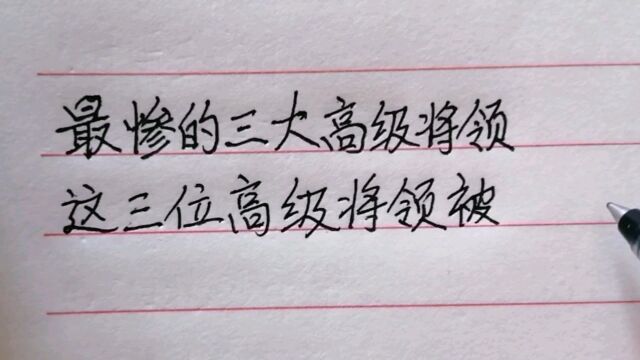 最惨的三大高级将领
这三位高级将领被